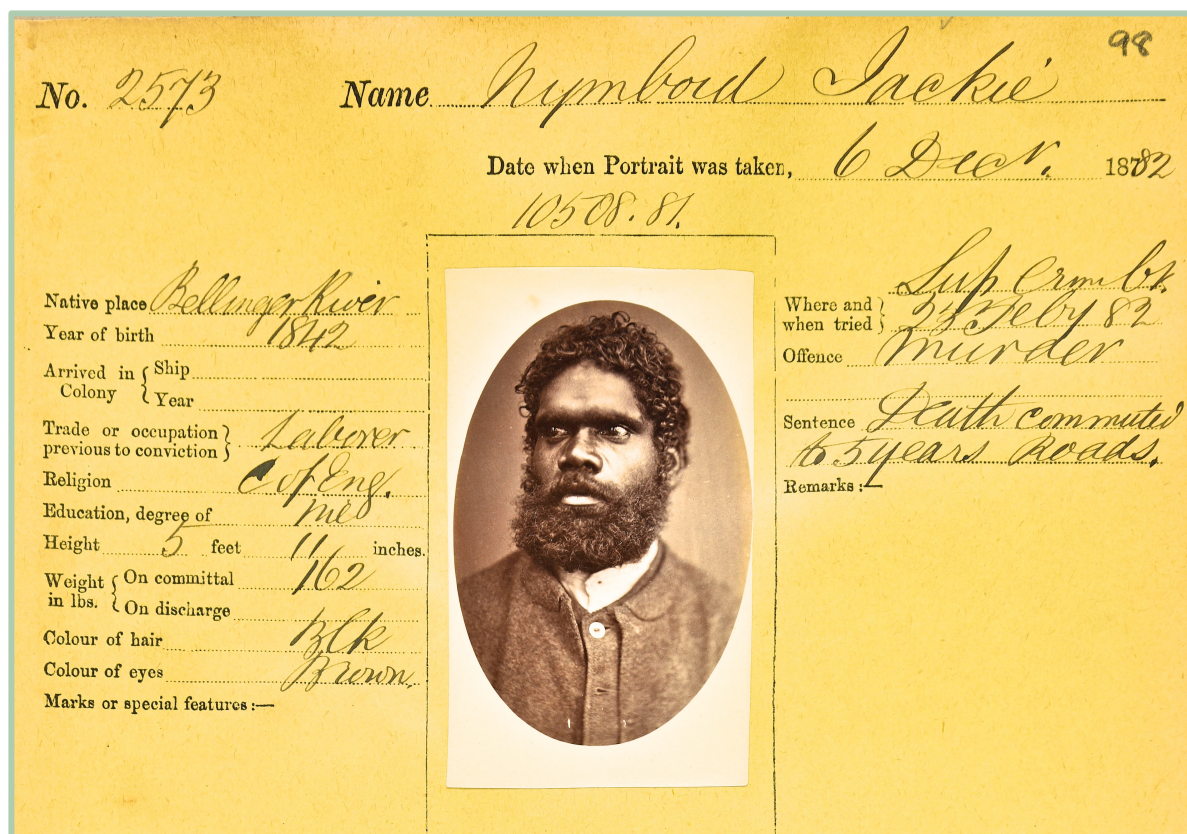 98
No. 2573 Name Nymboid Jackie
Date when Portrait was taken, 6 Decr. 1882
10508.81.
Native place Bellinger River
Year of birth 1842
Arrived in Colony { Ship
Year
Trade or occupation previous to conviction } Laborer
Religion C of Eng.
Education, degree of
Height 5 feet 11 inches.
Weight in lbs. { On committal 162
On discharge
Colour of hair Blk
Colour of eyes Brown.
Marks or special features:—
Where and when tried } Sup Crm Ct. Feby 82
Offence Murder
Sentence Death commuted
to 5 years Roads.
Remarks:—